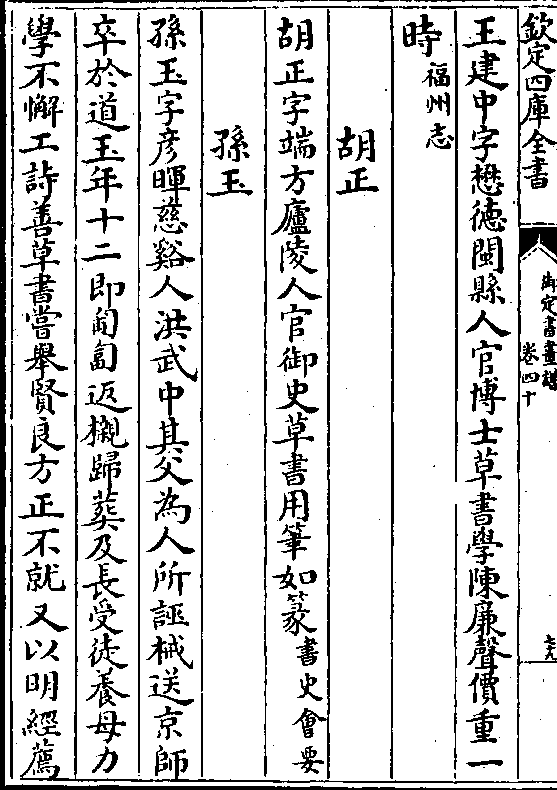 欽定四庫全書
御定書畫譜
卷四十
王建中字懋德閩縣人官博士草書學陳廉聲價重一
時福州志
胡正
胡正字端方廬陵人官御史草書用筆如篆書史會要
孫玉
孫玉字彥暉慈谿人洪武中其父為人所誣械送京師
卒於道玉年十二即匍匐返櫬歸葬及長受徒養母力
學不懈工詩善草書嘗舉賢良方正不就又以明經薦